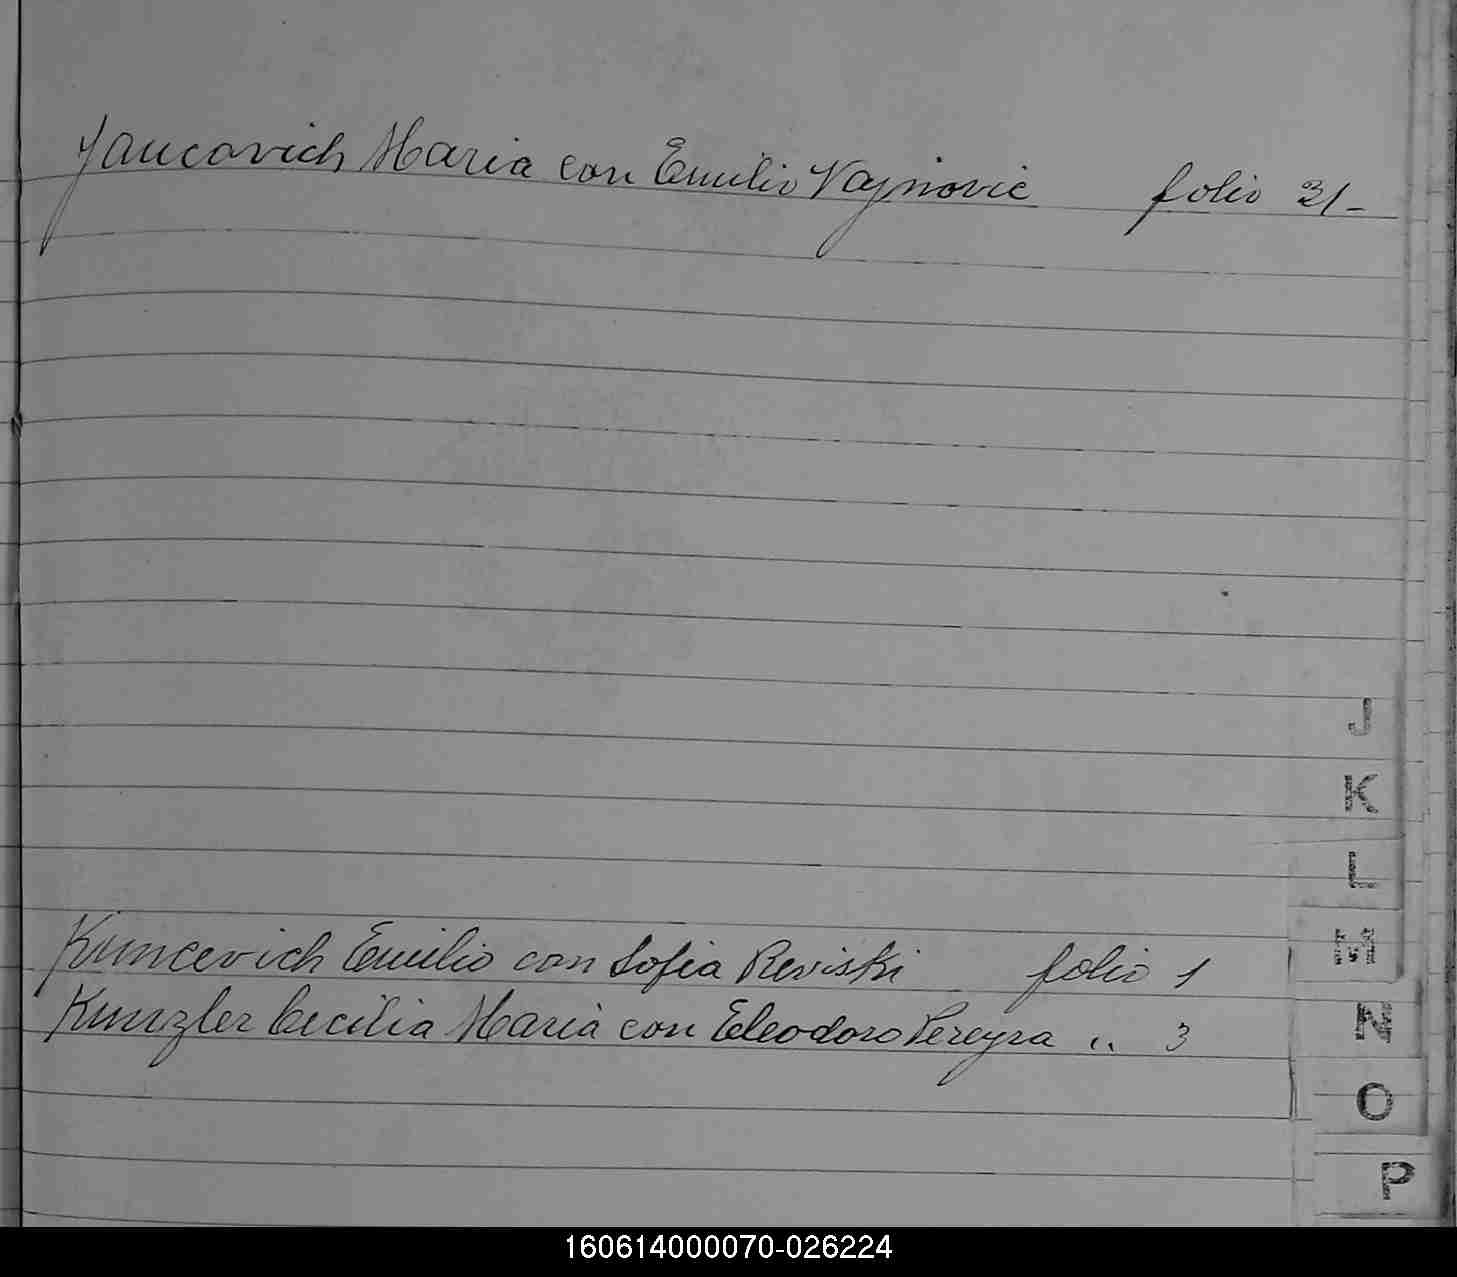 Jaucovich Maria con Emilio Vajnovic folio 31-
J
K
L
Kumcevich Emilio con Sofia Reviski folio 1
M
Kunzler Cecilia Maria con Eleodoro Pereyra " 3
N
O
P
160614000070-026224